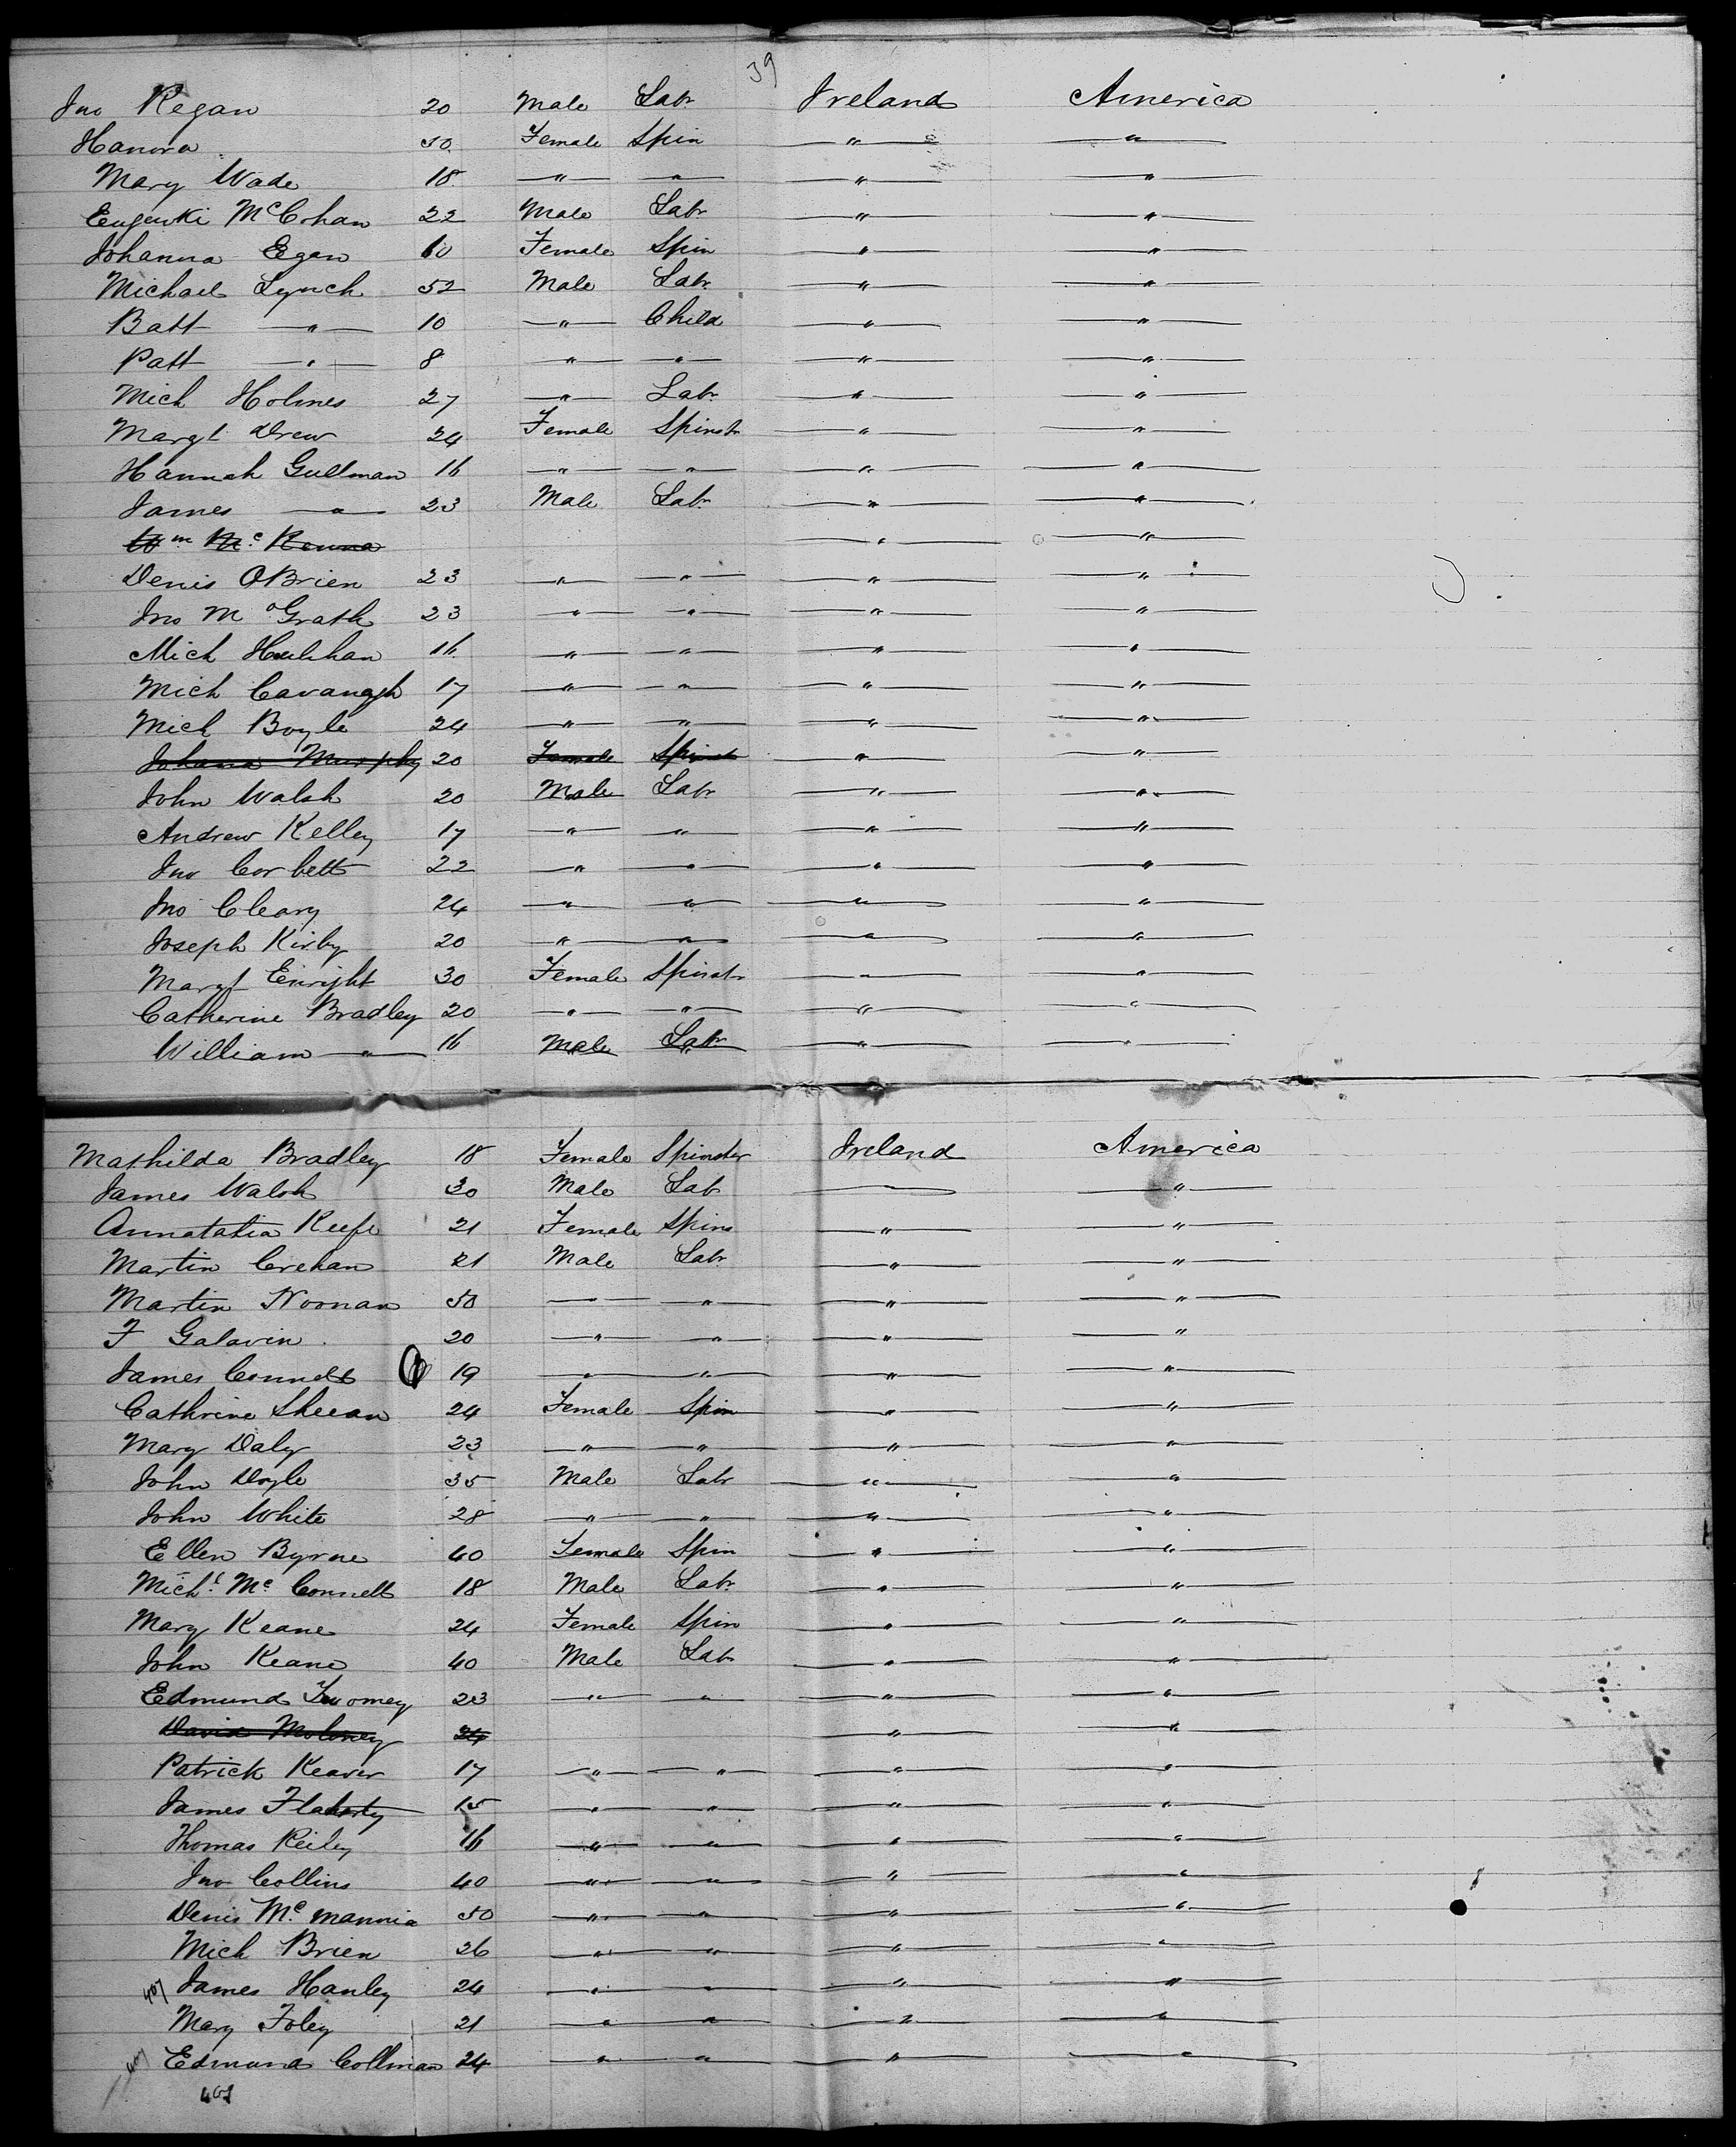 39
Jno Regan 20 Male Labr Ireland America
Hanora 50 Female Spin " "
Mary Wade 18 " " " "
McCohan 22 Male Labr " "
Johanna Egan Female Spin " "
Michael Lynch 52 Male Labr " "
Batt " 10 " Child " "
Patt " 8 " " " "
Mich Holmes 27 " Labr " "
Margt Drew 24 Female Spinstr " "
Hannah Gullman 16 " " " "
James " 23 Male Labr " "
Wm Mc Kenna " "
Denis OBrien 23 " " " "
Jno McGrath 23 " " " "
Mich Hulihan 16 " " " "
Mich Cavanagh 17 " " " "
Mich Boyle 24 " " " "
Johana Murphy 20 Female Spinstr " "
John Walsh 20 Male Labr " "
Andrew Kelley 17 " " " "
Jno Corbett 22 " " " "
Jno Cleary 24 " " " "
Joseph Kirby 20 " " " "
Margt Enright 30 Female Spinstr " "
Catherine Bradley 20 " " " "
William " 16 Male Labr " "
Mathilda Bradley 18 Female Spinster Ireland America
James Walsh 30 Male Lab "
Annatatia Keefe 21 Female Spins " "
Martin Crehan 21 Male Labr " "
Martin Noonan 50 " " " "
F Galavin 20 " " " "
James Connell 19 " " " "
Cathrine Sheean 24 Female Spin " "
Mary Daly 23 " " " "
John Doyle 35 Male Labr " "
John White 28 " " " "
Ellen Byrne 40 Female Spin " "
Michl Mc Connell 18 Male Labr " "
Mary Keane 24 Female Spin " "
John Keane 40 Male Labr " "
Edmund Twomey 23 " " " "
David Moloney 24 " "
Patrick Keaver 17 " " " "
James Flaherty 15 " " " "
Thomas Keiley 16 " " " "
Jno Collins 40 " " " "
Denis Mc mannia 50 " " " "
Mich Brien 26 " " " "
James Hanley 24 " " " "
Mary Foley 21 " " " "
Edmund Collman 24 " " " "